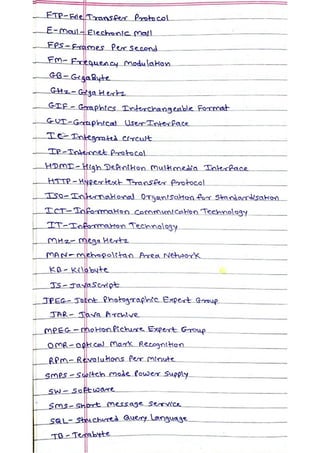 FTP - File Transfer Protocol
E-mail - Electronic Mail
FPS - Frames Per Second
FM - Frequency Modulation
GB - GigaByte
GHz - Giga Hertz
GIF - Graphics Interchangeable Format
GUI - Graphical User Interface
IC - Integrated Circuit
IP - Internet Protocol
HDMI - High Definition Multimedia Interface
HTTP - Hypertext Transfer Protocol
ISO - International Organisation for Standardisation
ICT - Information Communication Technology
IT - Information Technology
MHz - Mega Hertz
MAN - Metropolitan Area Network
KB - Kilobyte
JS - JavaScript
JPEG - Joint Photographic Expert Group
JAR - Java Archive
MPEG - Motion Picture Expert Group
OMR - Optical Mark Recognition
RPM - Revolutions Per Minute
SMPS - Switch mode Power Supply
SW - Software
SMS - Short Message Service
SQL - Structured Query Language
TB - Terabyte